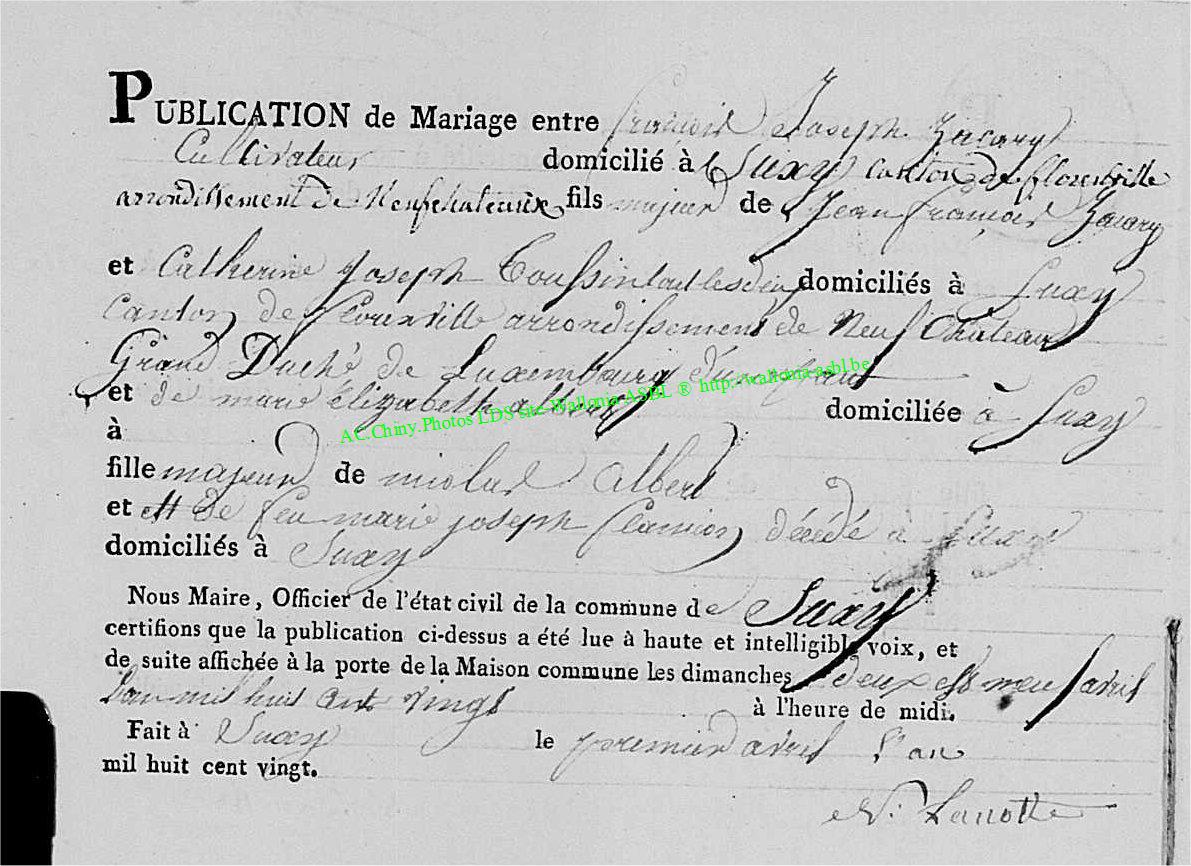 PUBLICATION de Mariage entre françois Joseph Zacary
Cultivateur domicilié à Suxy canton de florenville
arrondissement de Neufchateaux fils majeur de Jean françois Zacary
et Catherine Joseph Toussint tout les deux domiciliés à Suxy
Canton de florenville arrondissement de Neuf Chateau
Grand Duché de Luxembourg d'une part
et de marie élizabeth albert domiciliée à Suxy
à
AC.Chiny.Photos LDS site Wallonia ASBL ® http://wallonia-asbl.be
fille majeur de nicolas Albert
et de feu marie joseph décédé à Suxy
domiciliés à Suxy
Nous Maire, Officier de l'état civil de la commune de Suxy
certifions que la publication ci-dessus a été lue à haute et intelligible voix, et
de suite affichée à la porte de la Maison commune les dimanches deux et neuf avril
l'an mil huit cent vingt à l'heure de midi.
Fait à Suxy le premier avril l'an
mil huit cent vingt.
N. Lanotte